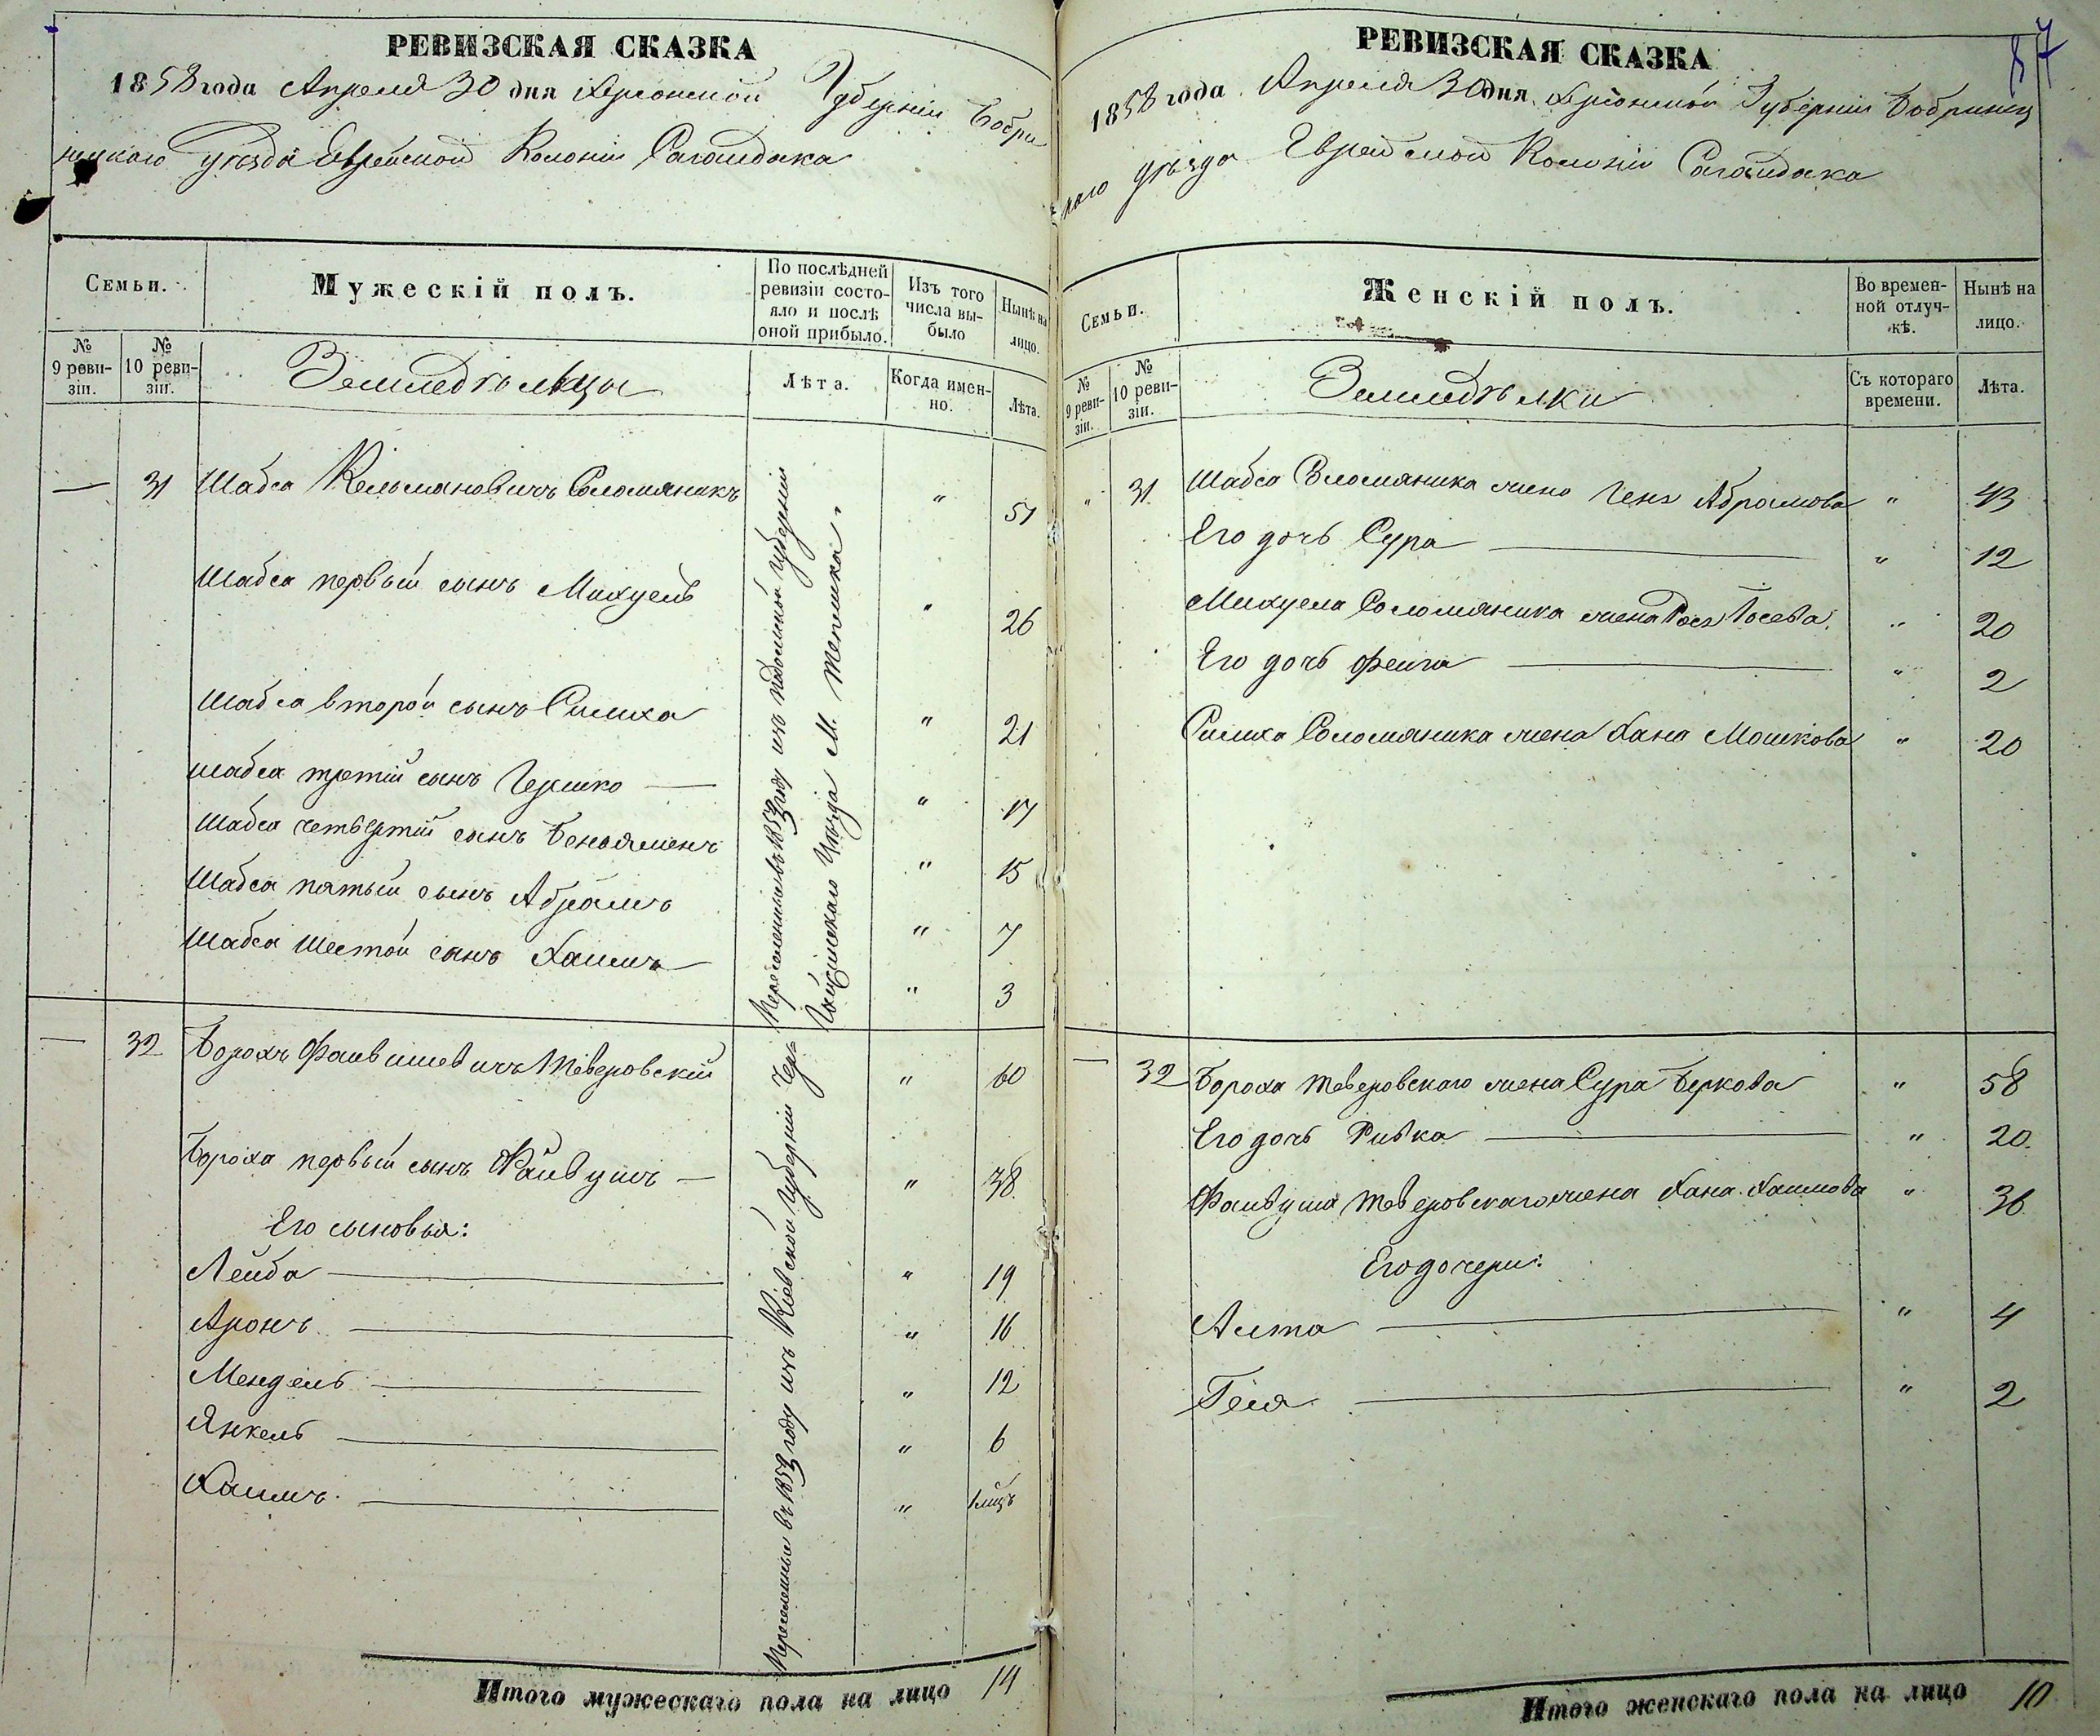 РЕВИЗСКАЯ СКАЗКА
1858 года Апреля 30 дня Херсонской Губерніи Бобри
нецкаго уѣзда Еврейской Колоніи Сагайдака
Семьи.
Мужескій полъ.
По послѣдней ревизіи состояло и послѣ оной прибыло.
Изъ того числа выбыло
Нынѣ на лицо.
№ 9 ревизіи.
№ 10 ревизіи.
Земледѣльцы
Лѣта.
Когда именно.
Лѣта.
— 31 Шабса Кельмановичъ Соломяникъ " 51
Шабса первый сынъ Михуель " 26
Шабса второй сынъ Симха " 21
Шабса третій сынъ Гершко — " 17
Шабса четвертый сынъ Беньяменъ " 15
Шабса пятый сынъ Абрамъ " 7
Шабса шестой сынъ Хаимъ " 3
Переселенные въ 1853 году изъ Подольской губерніи
Гайсинскаго Уѣзда М. Теплика.
— 32 Борохъ Файвишевичъ Теверовскій " 60
Бороха первый сынъ Файвушъ — " 38
Его сыновья:
Лейба " 19
Аронъ " 16
Мендель " 12
Янкель " 6
Хаимъ "
Переселенные въ 1853 году изъ Кіевской Губерніи
Итого мужескаго пола на лицо 14
РЕВИЗСКАЯ СКАЗКА
1858 года Апреля 30 дня Херсонской Губерніи Бобринец
каго уѣзда Еврейской Колоніи Сагайдака
87
Семьи.
Женскій полъ.
Во временной отлучкѣ.
Нынѣ на лицо.
№ 9 ревизіи.
№ 10 ревизіи.
Земледѣлки
Съ котораго времени.
Лѣта.
" 31 Шабса Соломяника жена Геня Абрамова " 43
Его дочь Сура " 12
Михуела Соломяника жена Рося Іосева " 20
Его дочь Фейга " 2
Симха Соломяника жена Хана Мошкова " 20
— 32 Бороха Теверовскаго жена Сура Беркова " 58
Его дочь Ривка " 20
Файвуша Теверовскаго жена Хана Хаимова " 36
Его дочери:
Алта " 4
Геля " 2
Итого женскаго пола на лицо 10